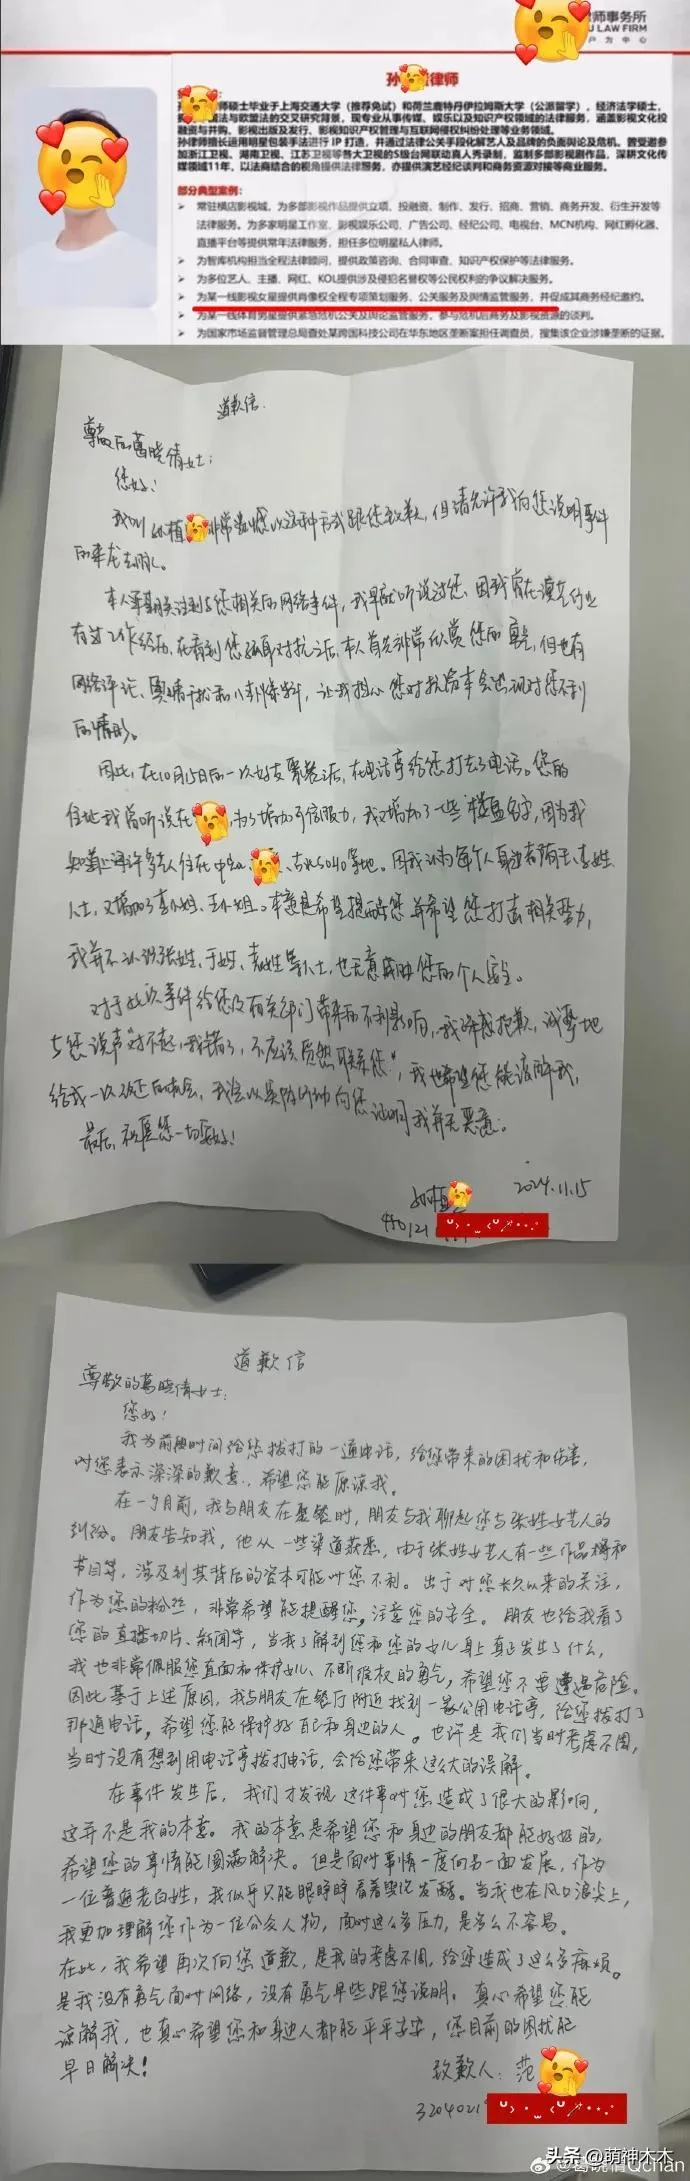 律师事务所
LAW FIRM
户为中心
孙 律师
师硕士毕业于上海交通大学（推荐免试）和荷兰鹿特丹伊拉姆斯大学（公派留学），经济法学硕士，
法与欧盟法的交叉研究背景，现专业从事传媒、娱乐以及知识产权领域的法律服务，涵盖影视文化投
融资与并购、影视出版及发行、影视知识产权管理与互联网侵权纠纷处理等业务领域。
孙律师擅长运用明星包装手法进行 IP 打造，并通过法律公关手段化解艺人及品牌的负面舆论及危机。曾受邀参
加浙江卫视、湖南卫视、江苏卫视等各大卫视的S级台网联动真人秀录制，监制多部影视剧作品，深耕文化传
媒领域11年，以法商结合的视角提供法律服务，亦提供演艺经纪谈判和商务资源对接等商业服务。
部分典型案例：
常驻横店影视城，为多部影视作品提供立项、投融资、制作、发行、招商、营销、商务开发、衍生开发等
法律服务。为多家明星工作室、影视娱乐公司、广告公司、经纪公司、电视台、MCN机构、网红孵化器、
直播平台等提供常年法律服务，担任多位明星私人律师。
为智库机构担当全程法律顾问，提供政策咨询、合同审查、知识产权保护等法律服务。
为多位艺人、主播、网红、KOL提供涉及侵犯名誉权等公民权利的争议解决服务。
为某一线影视女星提供肖像权全程专项策划服务、公关服务及舆情监管服务，并促成其商务经纪邀约。
为某一线体育男星提供紧急危机公关及舆论监管服务，参与危机后商务及影视资源的谈判。
为国家市场监督管理总局查处某跨国科技公司在华东地区垄断案担任调查员，搜集该企业涉嫌垄断的证据。
道歉信
尊敬的葛晓倩女士：
您好！
我叫孙植 非常遗憾以这种方式跟您致歉，但请允许我向您说明事件
的来龙去脉。
本人早期关注到与您相关的网络事件，我早就听说过您，因我曾在演艺行业
有过工作经历，在看到您 对抗之后，本人首先非常欣赏您的勇气，但也有
网络评论、舆情干扰和八卦爆料，让我担心您对抗资本会出现对您不利
的情形。
因此，在10月15日的一次好友聚餐之后，在电话亭给您打去了电话。您的
住址我曾听说在 ，为了增加可信服力，我又增加了一些“楼盘名字，因为我
知道 许多艺人住在中 、 等地。因我认为每个人身边都有王、李姓
人士，又增加了李小姐、王小姐。本意是希望提醒您并希望您打击相关势力，
我并不认识张姓、于姓、袁姓等人士，也无意威胁您的个人安全。
对于此次事件给您及有关部门带来的不利影响，我深感抱歉，诚挚地
与您说声“对不起，我错了，不应该贸然联系您”，我也希望您能谅解我，
给我一次改正的机会，我会以实际行动向您证明我并无恶意。
最后，祝愿您一切安好！
孙植
2024.11.15
440121
道歉信
尊敬的葛晓倩女士：
您好！
我为前段时间给您拨打的一通电话，给您带来的困扰和伤害，
对您表示深深的歉意，希望您能原谅我。
在一个月前，我与朋友在聚餐时，朋友与我聊起您与张姓女艺人的
纠纷。朋友告知我，他从一些渠道获悉，由于张姓女艺人有一些作品播和
节目等，涉及到其背后的资本可能对您不利。出于对您长久以来的关注，
作为您的粉丝，非常希望能提醒您，注意您的安全。朋友也给我看了
您的直播切片、新闻等，当我了解到您和您的女儿身上真正发生了什么，
我也非常佩服您直面和保护女儿、不断维权的勇气，希望您不要遭遇危险。
因此基于上述原因，我与朋友在餐厅附近找到一家公用电话亭，给您拨打了
那通电话，希望您能保护好自己和身边的人。也许是我们当时考虑不周，
当时没有想到用电话亭拨打电话，会给您带来这么大的误解。
在事件发生后，我们才发现这件事对您造成了很大的影响，
这并不是我的本意。我的本意是希望您和身边的朋友都能好好的，
希望您的事情能圆满解决。但是面对事情一度向另一面发展，作为
一位普通老百姓，我似乎只能眼睁睁看着舆论发酵。当我也在风口浪尖上，
我更加理解您作为一位公众人物，面对这么多压力，是多么不容易。
在此，我希望再次向您道歉，是我的考虑不周，给您造成了这么多麻烦。
是我没有勇气面对网络，没有勇气早些跟您说明。真心希望您能
谅解我，也真心希望您和身边人都能平平安安，您目前的困扰能
早日解决！
致歉人：范
3204021
头条 @萌神木木
@葛晓倩Qchan